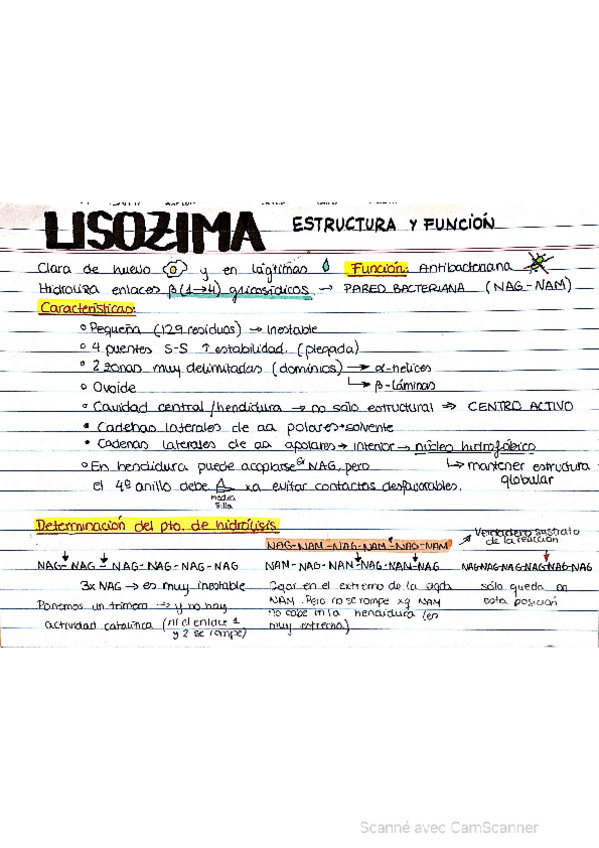 LISOZIMA ESTRUCTURA Y FUNCIÓN
Clara de huevo y en lágrimas Función: Antibacteriana
Hidroliza enlaces β(1→4) glicosídicos → PARED BACTERIANA (NAG-NAM)
Características:
° Pequeña (129 residuos) → Inestable
° 4 puentes S-S ↑ estabilidad. (plegada)
° 2 zonas muy delimitadas (dominios) → α-hélices
° Ovoide ↳ β-láminas
° Cavidad central/hendidura → no sólo estructural ⇒ CENTRO ACTIVO
• Cadenas laterales de aa polares→solvente
• Cadenas laterales de aa apolares → interior → núcleo hidrofóbico
° En hendidura puede acoplarse 6 NAG, pero ↳ mantener estructura
el 4º anillo debe xa evitar contactos desfavorables. globular
media
silla
Determinación del pto. de hidrólisis
NAG-NAM-NAG-NAM-NAG-NAM
Verdadero sustrato
de la reacción
NAG-NAG-NAG-NAG-NAG-NAG NAM-NAG-NAM-NAG-NAM-NAG NAG-NAG-NAG-NAG-NAG-NAG
3x NAG → es muy inestable en el extremo de la sólo queda en
Ponemos un trímero → y no hay NAM. Pero no se rompe xq NAM esta posición
actividad catalítica (ni el enlace 1 no cabe en la hendidura (es
y 2 se rompe) muy estrecha)
Scanné avec CamScanner